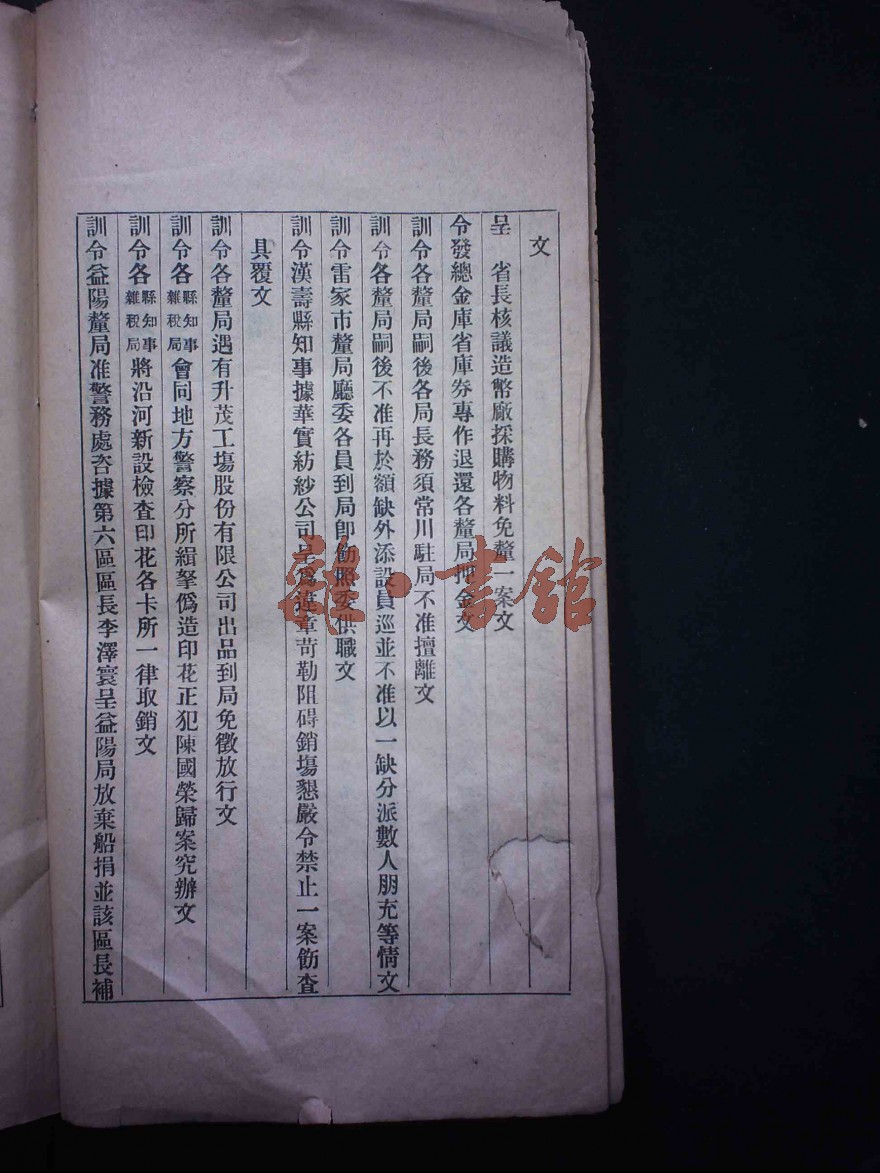 文
呈　省長核議造幣廠採購物料免釐一案文
令發總金庫省庫券專作退還各釐局押金文
訓令各釐局嗣後各局長務須常川駐局不准擅離文
訓令各釐局嗣後不准再於額缺外添設員巡並不准以一缺分派數人朋充等情文
訓令雷家市釐局廳委各員到局卽飭照委供職文
訓令漢壽縣知事據華實紡紗公司呈爲違章苛勒阻碍銷塲懇嚴令禁止一案飭查
具覆文
訓令各釐局遇有升茂工塲股份有限公司出品到局免徵放行文
訓令各縣知事雜稅局會同地方警察分所緝拏僞造印花正犯陳國榮歸案究辦文
訓令各縣知事雜稅局將沿河新設檢查印花各卡所一律取銷文
訓令益陽釐局准警務處咨據第六區區長李澤寰呈益陽局放棄船捐並該區長補
雜·書館